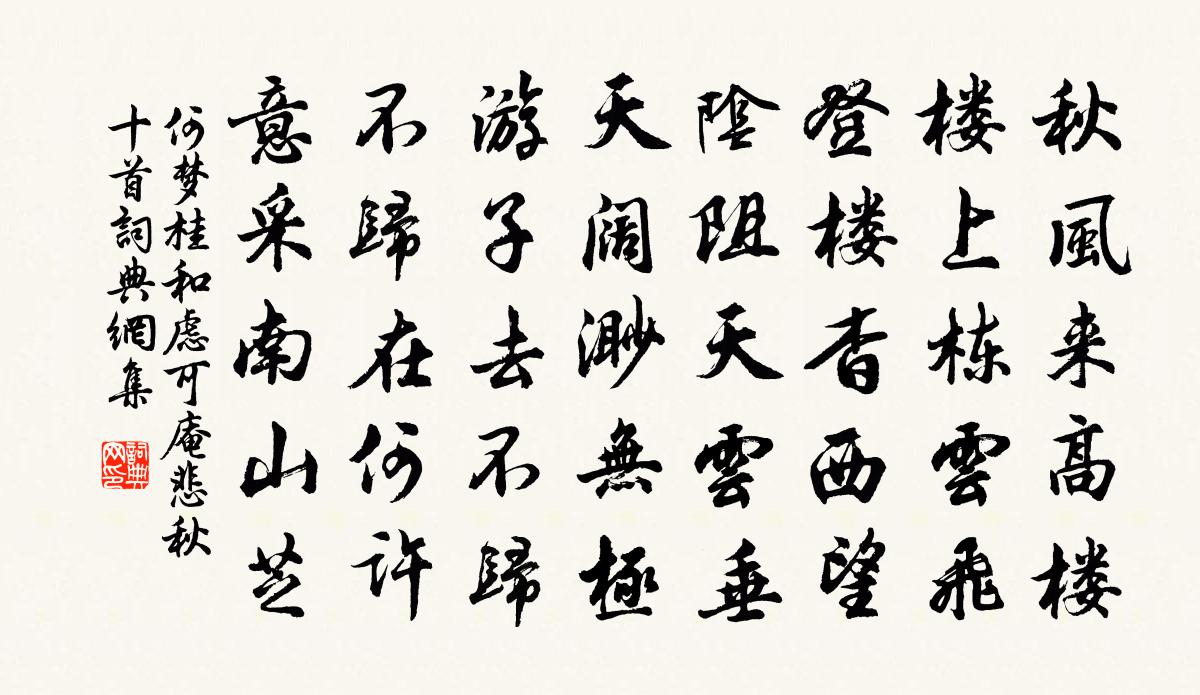 秋風来高楼
楼上栋雲飛
登楼杳西望
陰阻天雲垂
天阔渺無極
游子去不歸
不歸在何許
意采南山芝
何梦桂和虑可庵悲秋
十首詞典網集
詞典网印